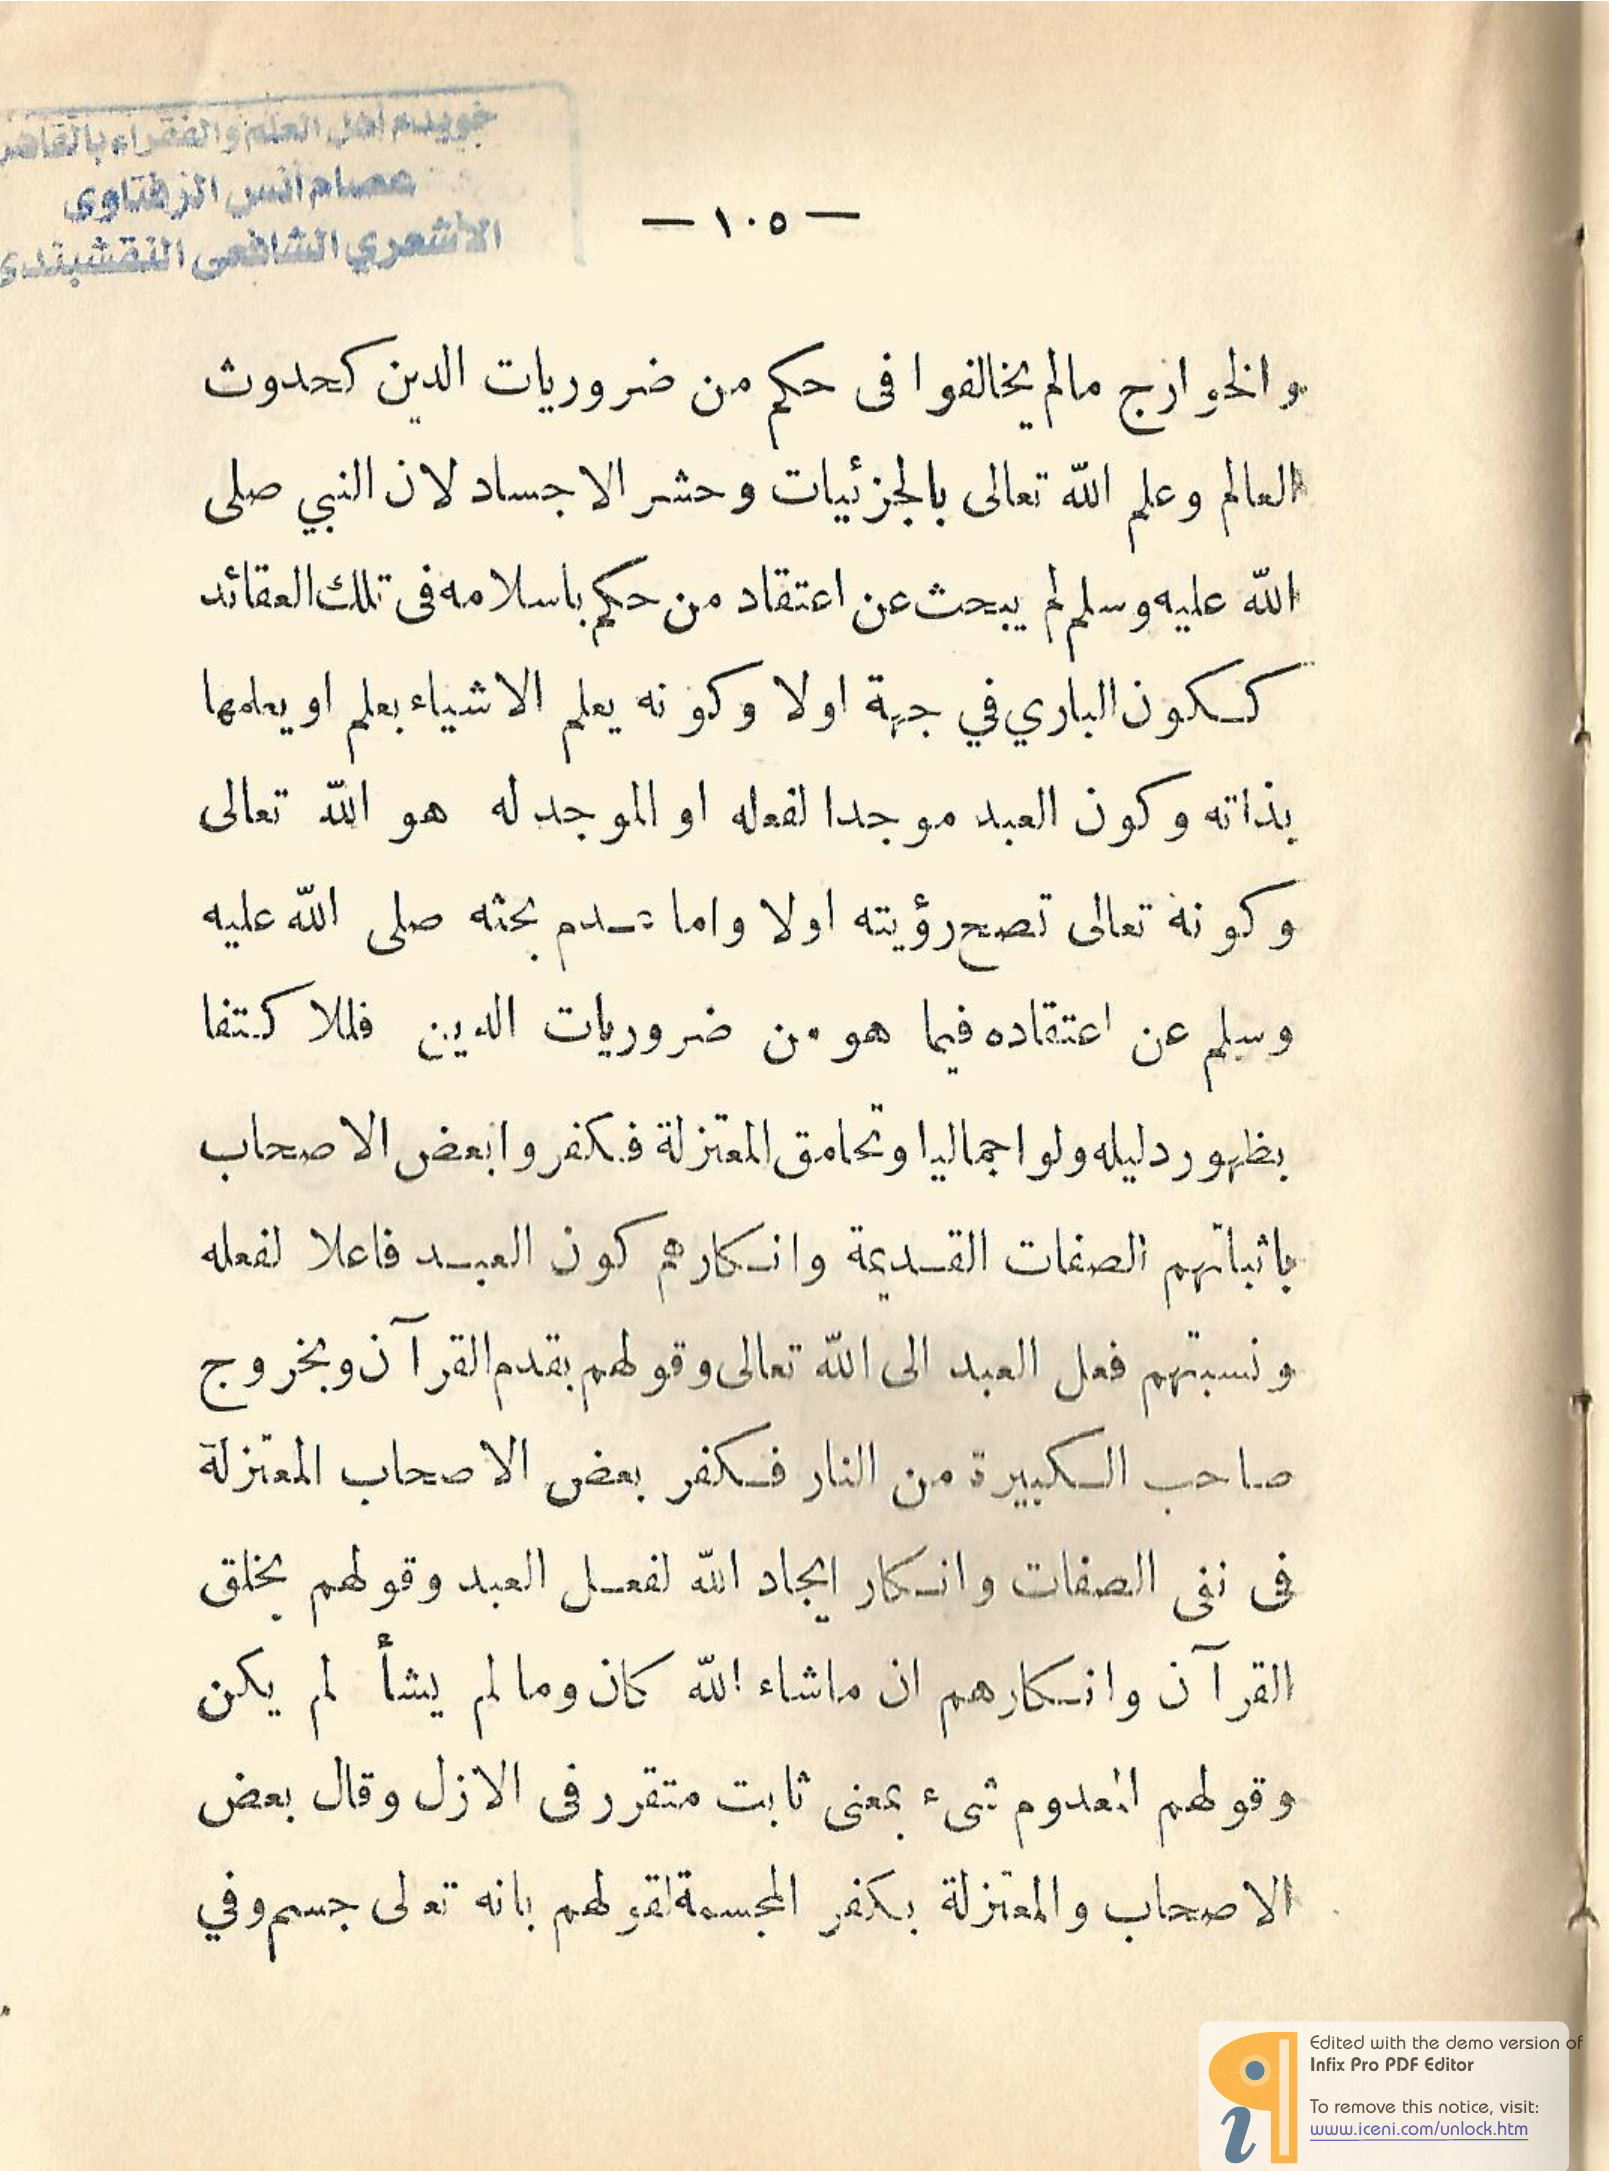 خويدم اهل العلم والفقراء بالقاهر
عصام أنس الزفتاوى
الأشعري الشافعى النقشبندى
— ١٠٥ —
والخوارج مالم يخالفوا فى حكم من ضروريات الدين كحدوث
العالم وعلم الله تعالى بالجزئيات وحشر الاجساد لان النبي صلى
الله عليه وسلم لم يبحث عن اعتقاد من حكم باسلامه فى تلك العقائد
ككون الباري في جهة اولا وكونه يعلم الاشياء بعلم او يعلمها
بذاته وكون العبد موجدا لفعله او الموجد له هو الله تعالى
وكونة تعالى تصح رؤيته اولا واما عدم بحثه صلى الله عليه
وسلم عن اعتقاده فيما هو من ضروريات الدين فللاكتفا
بظهور دليله ولو اجماليا وتحامق المعتزلة فكفروا بعض الاصحاب
باثباتهم الصفات القديمة وانكارهم كون العبد فاعلا لفعله
ونسبتهم فعل العبد الى الله تعالى وقولهم بقدم القرآن وبخروج
صاحب الكبيرة من النار فكفر بعض الاصحاب المعتزلة
فى نفى الصفات وانكار ايجاد الله لفعل العبد وقولهم بخلق
القرآن وانكارهم ان ماشاء الله كان وما لم يشأ لم يكن
وقولهم المعدوم شىء بمعنى ثابت متقرر فى الازل وقال بعض
الاصحاب والمعتزلة بكفر المجسمة لقولهم بانه تعالى جسم وفي
Edited with the demo version of
Infix Pro PDF Editor
To remove this notice, visit:
www.iceni.com/unlock.htm